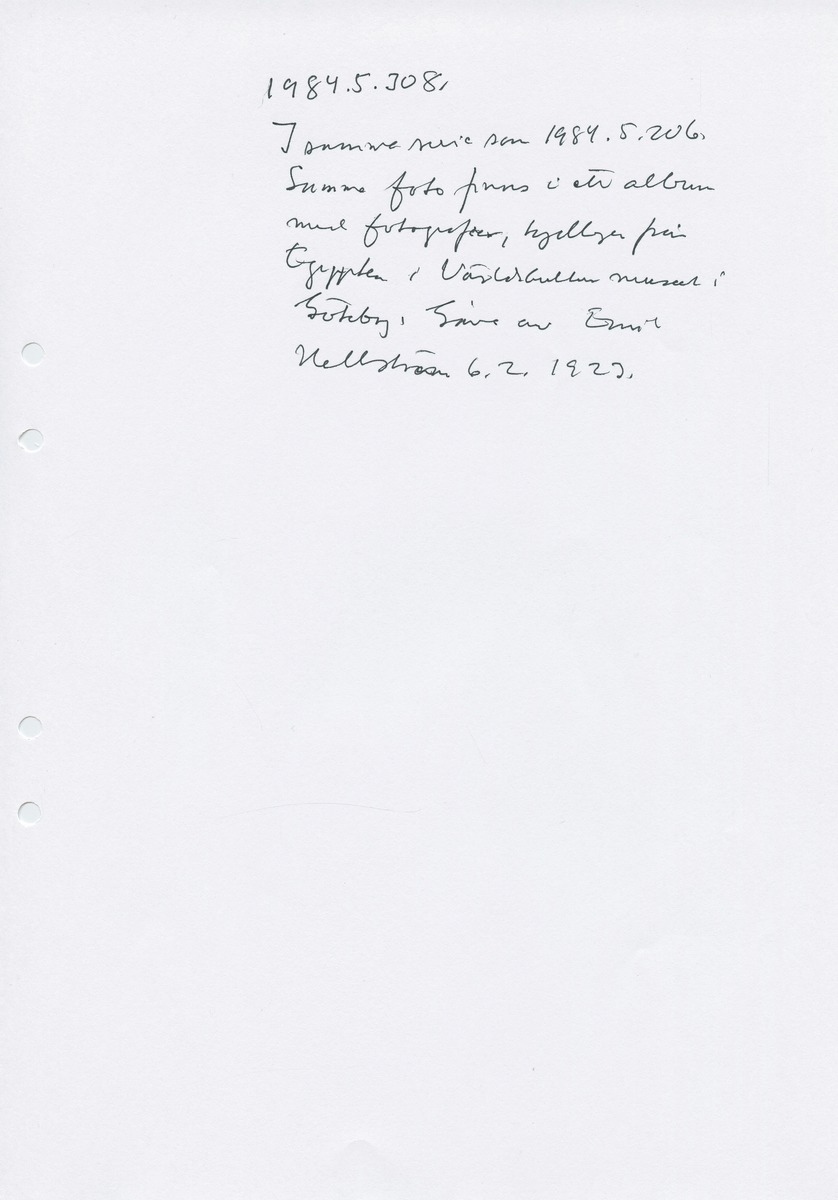 1984.5.308.
I samma serie som 1984.5.206.
Samma foto finns i ett album
med fotografier, från
Egypten i Världskultur museet i
Göteborg. Gåva av Emil
Hellström 6.2. 1923.